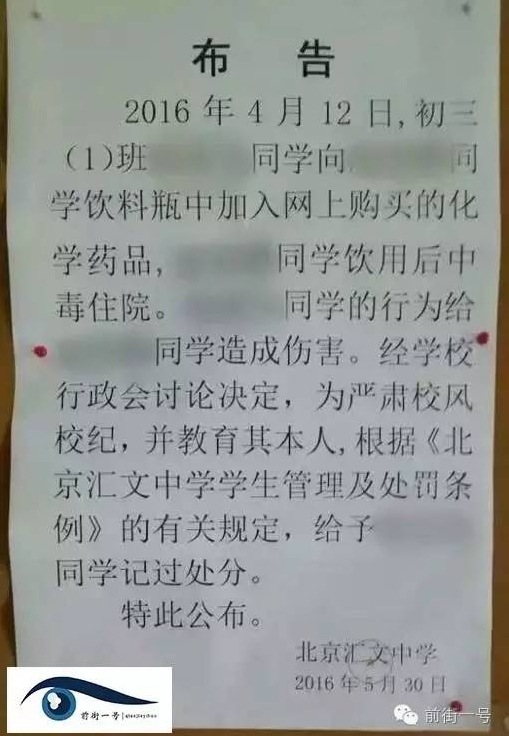 布 告
2016 年 4 月 12 日,初三
(1)班 同学向 同
学饮料瓶中加入网上购买的化
学药品, 同学饮用后中
毒住院。 同学的行为给
同学造成伤害。经学校
行政会讨论决定，为严肃校风
校纪，并教育其本人,根据《北
京汇文中学学生管理及处罚条
例》的有关规定，给予
同学记过处分。
特此公布。
北京汇文中学
2016 年 5 月 30 日
前街一号|qianjieyihao
前街一号